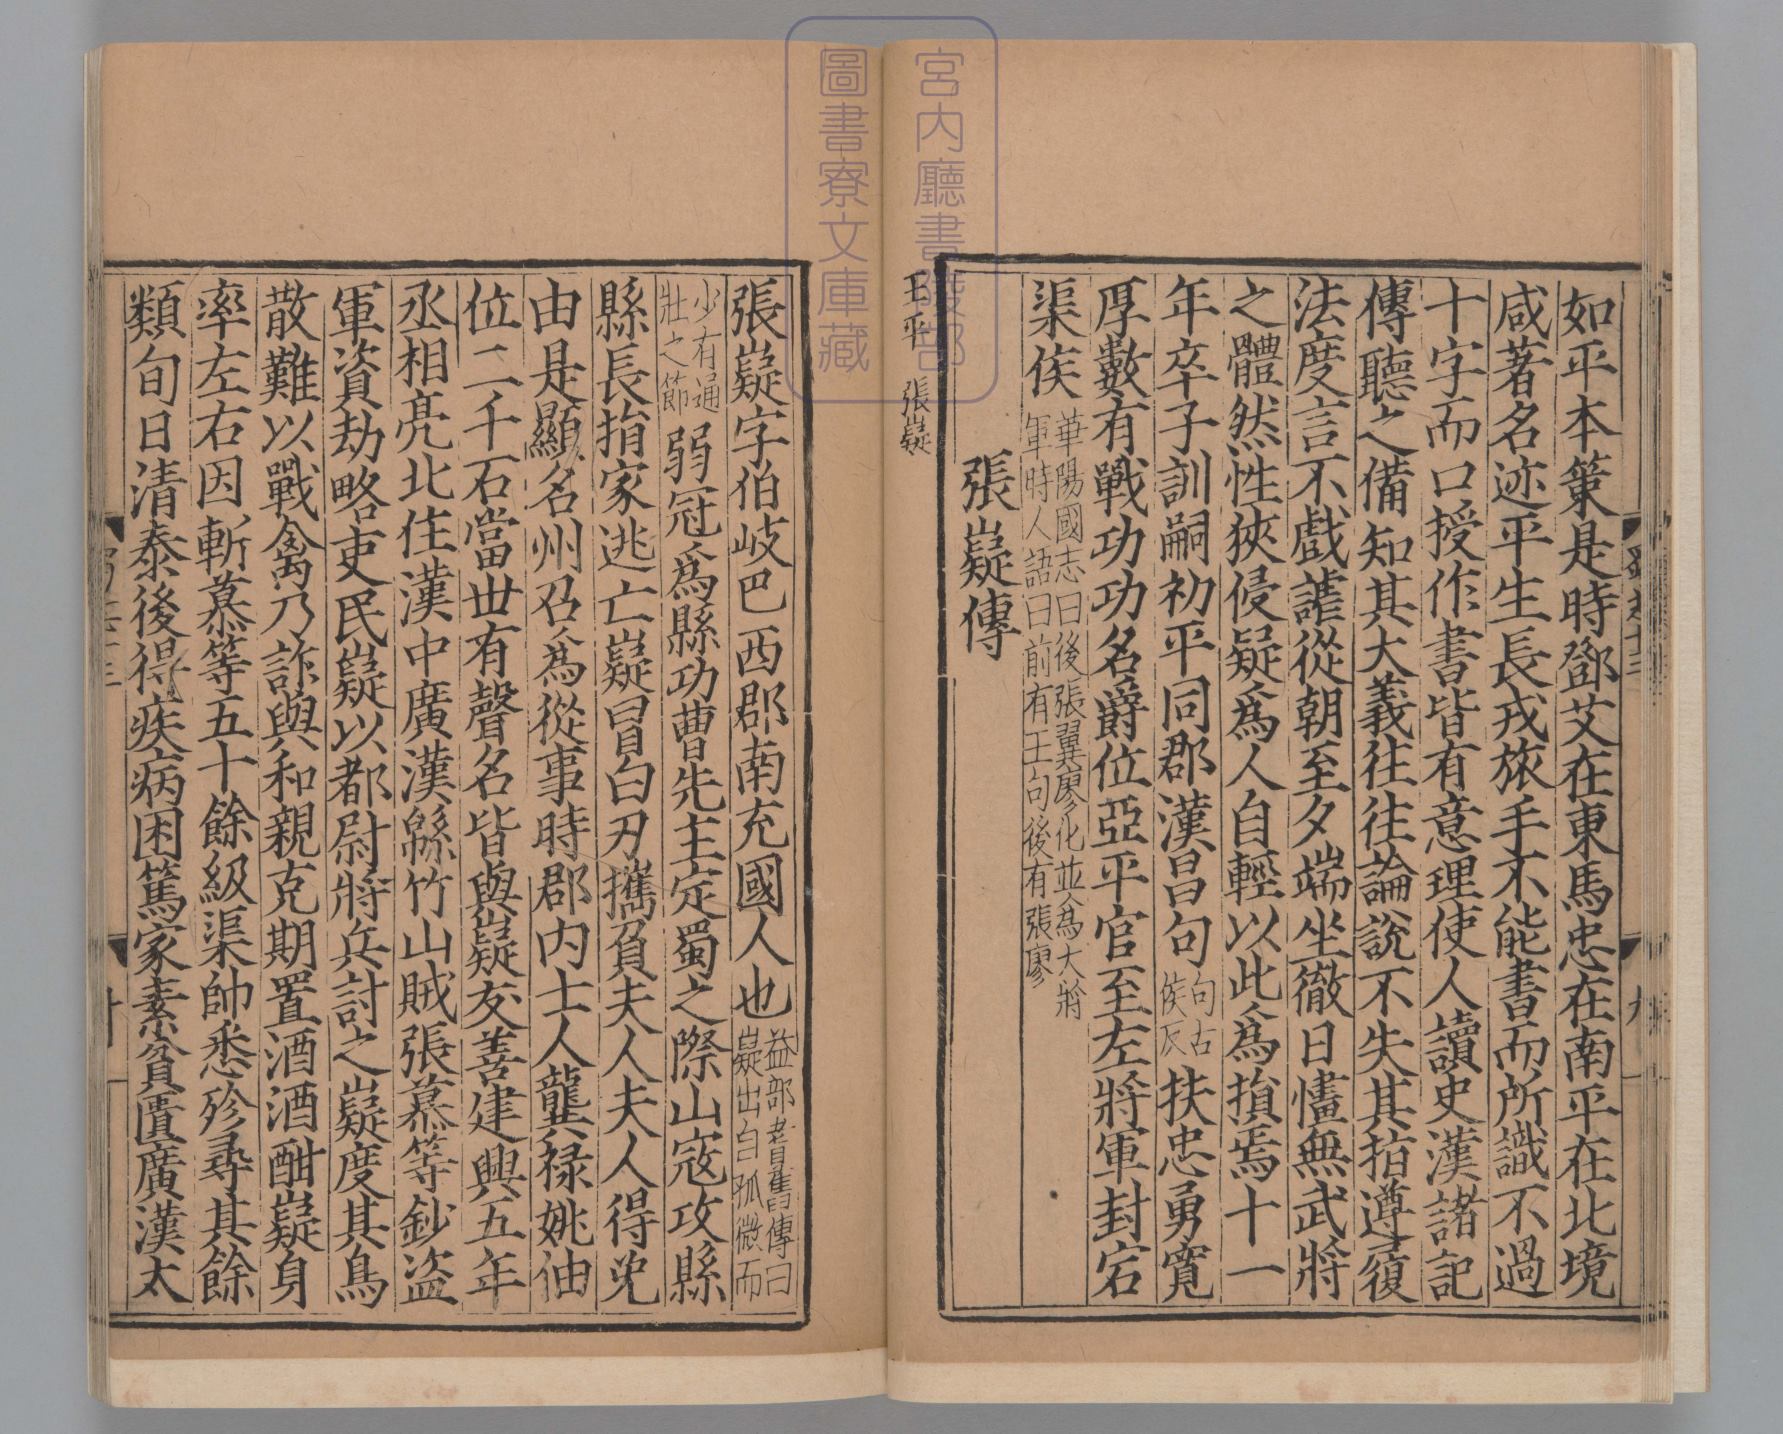 宮內廳書陵部
圖書寮文庫藏
如平本筞是時鄧艾在東馬忠在南平在北境
咸著名迹平生長戎旅手不能書而所識不過
十字而口授作書皆有意理使人讀史漢諸記
傳聽之備知其大義往往論說不失其指遵復
法度言不戲謔從朝至夕端坐徹日㦎無武將
之體然性狹侵疑爲人自輕以此爲損焉十一
年卒子訓嗣初平同郡漢昌句句古侯反扶忠勇寬
厚數有戰功功名爵位亞平官至左將軍封宕
渠侯華陽國志曰後張翼廖化並爲大將軍時人語曰前有王句後有張廖
張嶷傳
王平 張嶷
張嶷字伯岐巴西郡南充國人也益部耆舊傳曰嶷出自孤微而
少有通壯之節弱冠爲縣功曹先主定蜀之際山寇攻縣
縣長捐家逃亡嶷冒白刃攜負夫人夫人得免
由是顯名州召爲從事時郡內士人龔祿姚伷
位二千石當世有聲名皆與嶷友善建興五年
丞相亮北住漢中廣漢緜竹山賊張慕等鈔盜
軍資劫略吏民嶷以都尉將兵討之嶷度其鳥
散難以戰禽乃詐與和親克期置酒酒酣嶷身
率左右因斬慕等五十餘級渠帥悉殄尋其餘
類旬日清泰後得疾病困篤家素貧匱廣漢太